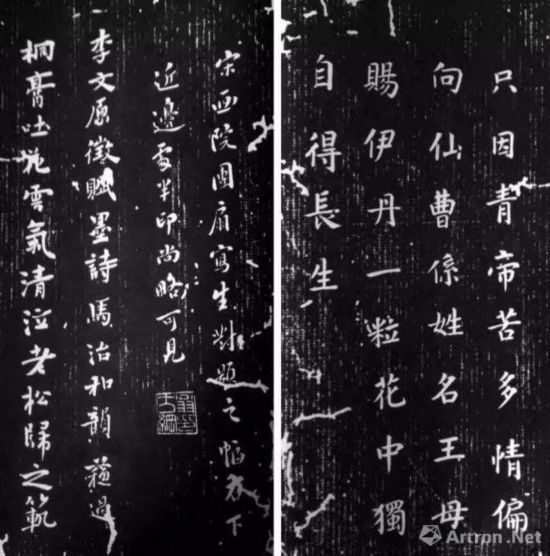 只因青帝苦多情偏
向仙曹係姓名王母
賜伊丹一粒花中獨
自得長生
宋院團扇寫生對題之幅右下
近邊處半印尚略可見
李文原徵賦墨詩馬治和韻過
桐膏吐雲氣清泣老松歸之範
Artron.Net